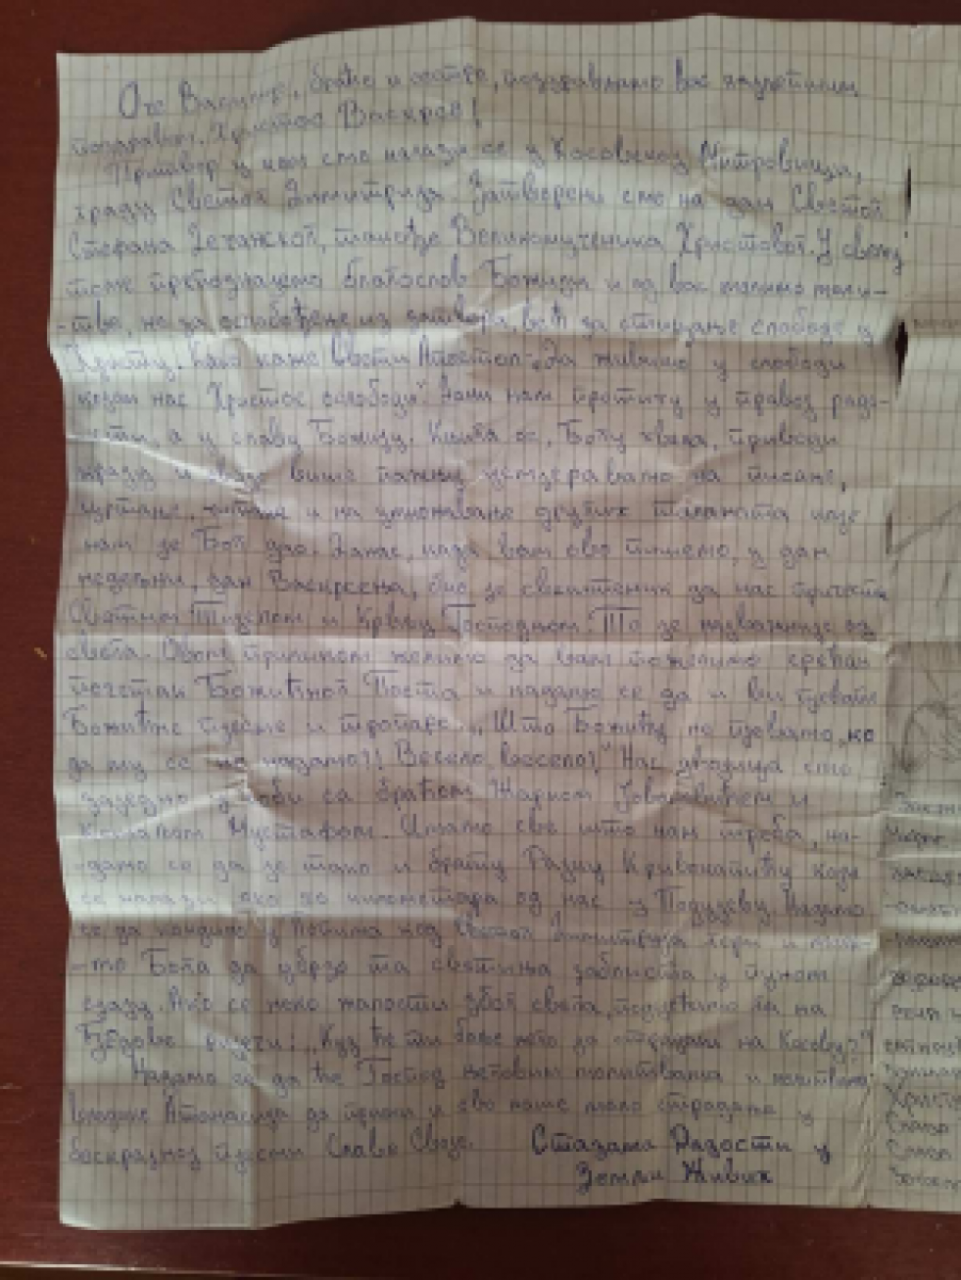 Оче Василије, браћо и сестре, поздрављамо вас најлепшим
поздравом. Христос Васкрсе!
Притвор у ком смо налази се у Косовској Митровици,
граду Светог Димитрија. Затворени смо на дан Светог
Стефана Дечанског, такође Великомученика Христовог. У свему
томе препознајемо благослов Божији и од вас молимо моли-
-тве, не за ослобођење из затвора, већ за стицање слободе у
Христу. Како каже Свети Апостол: „Да живимо у слободи
којом нас Христос ослободи". Дани нам протичу у правој радо-
-сти, а у славу Божију. Књига се, Богу хвала, приводи
крају и сада више пажње усмјеравамо на писање,
цртање, читање и на умножавање других таланата које
нам је Бог дао. Данас, када вам ово пишемо, у дан
недељни, дан Васкрсења, био је свештеник да нас причести
Светим Тијелом и Крвљу Господњом. То је најважније од
свега. Овом приликом желимо да вам пожелимо срећан
почетак Божићног Поста и надамо се да и ви пјевате
Божићне пјесме и тропаре. „Што Божићу не пјевамо, ко
да му се не надамо?! Весело, весело!" Нас двојица смо
заједно у соби са браћом Жарком Јовановићем и
Мустафом. Имамо све што нам треба, на-
-дамо се да је тако и брату Рајку Кривокапићу који
се налази око 40 километара од нас у Подујеву. Надамо
се да кандило у код Светог Димитрија гори и моли-
-мо Бога да убрзо та светиња заблиста у пуном
сјају. Ако се неко жалости због свега, подсјетимо га на
Ђедове ријечи: „Куј ће ти боље него да страдаш на Косову?"
Надамо се да ће Господ његовим молитвама и молитвама
владике Атанасија да прими и ово наше мало страдање у
бескрајној пјесми Славе Своје.
Стазама Радости у
Земљи Живих
Христу
Слава
Слава